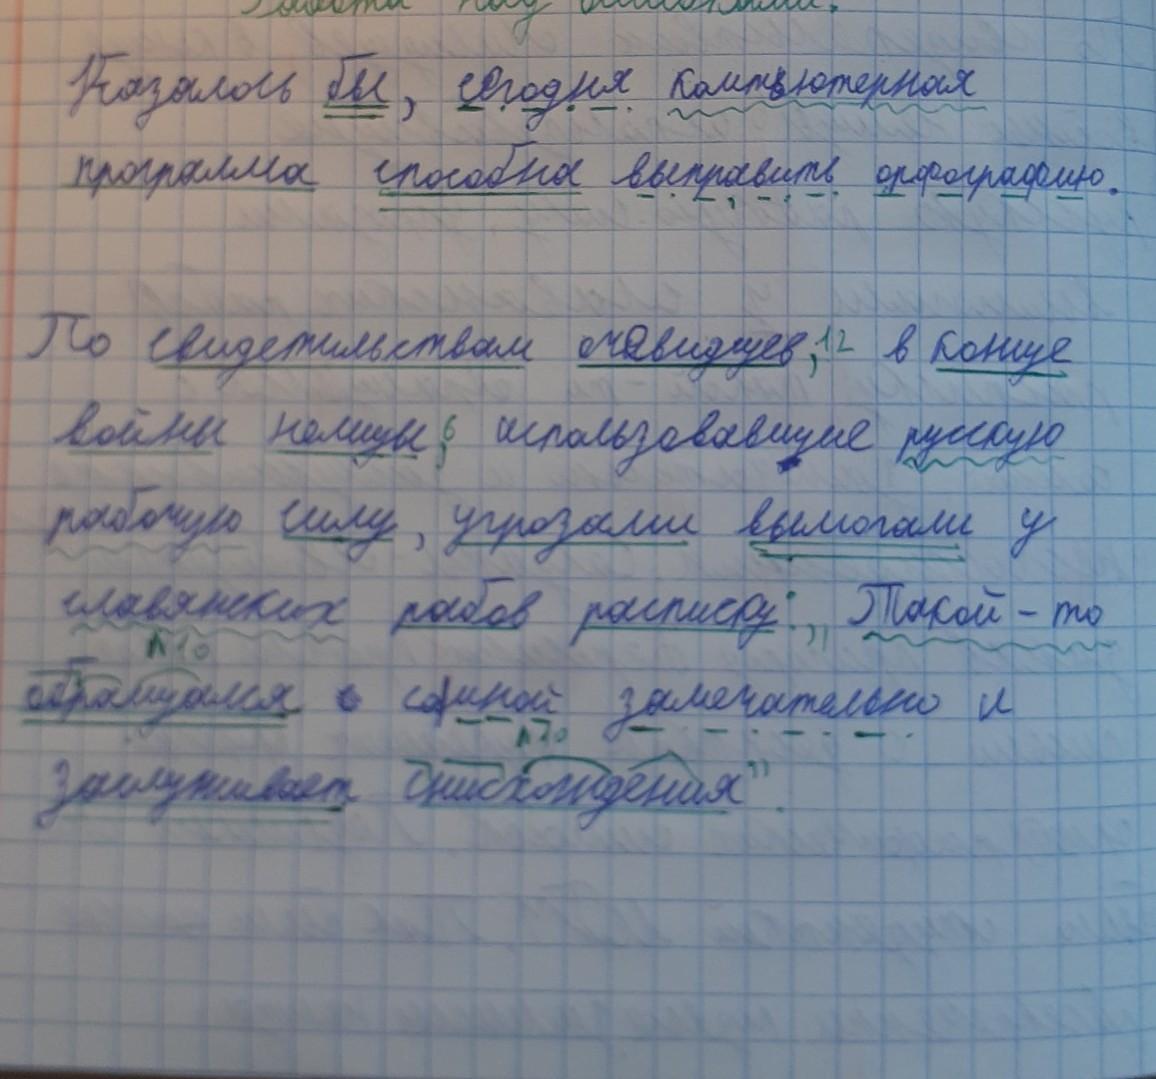 Работа над ошибками.
Казалось бы, сегодня компьютерная
программа способна выправить орфографию.
По свидетельствам очевидцев,12 в конце
войны немцы,6 использовавшие русскую
рабочую силу, угрозами вымогали у
славянских рабов расписку: „Такой-то
п10
обращался со мной замечательно и
п20
заслуживает снисхождения”.